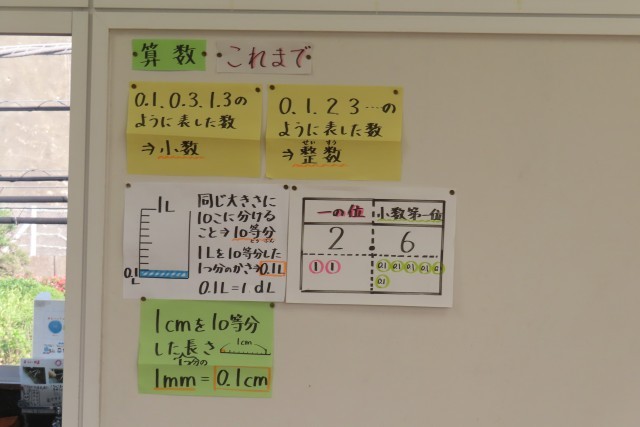 算数
これまで
0.1、0.3、1.3の
ように表した数
⇒小数
0、1、2 3…の
ように表した数
せい すう
⇒整数
1L
0.1L
同じ大きさに
10こに分ける
こと⇒10等分
とうぶん
1Lを10等分した
1つ分のかさ⇒0.1L
0.1L=1dL
一の位 小数第一位
2.6
1 1
0.1 0.1 0.1 0.1 0.1
0.1
1cmを10等分
した長さ 1cm
1つ分の
1mm=0.1cm